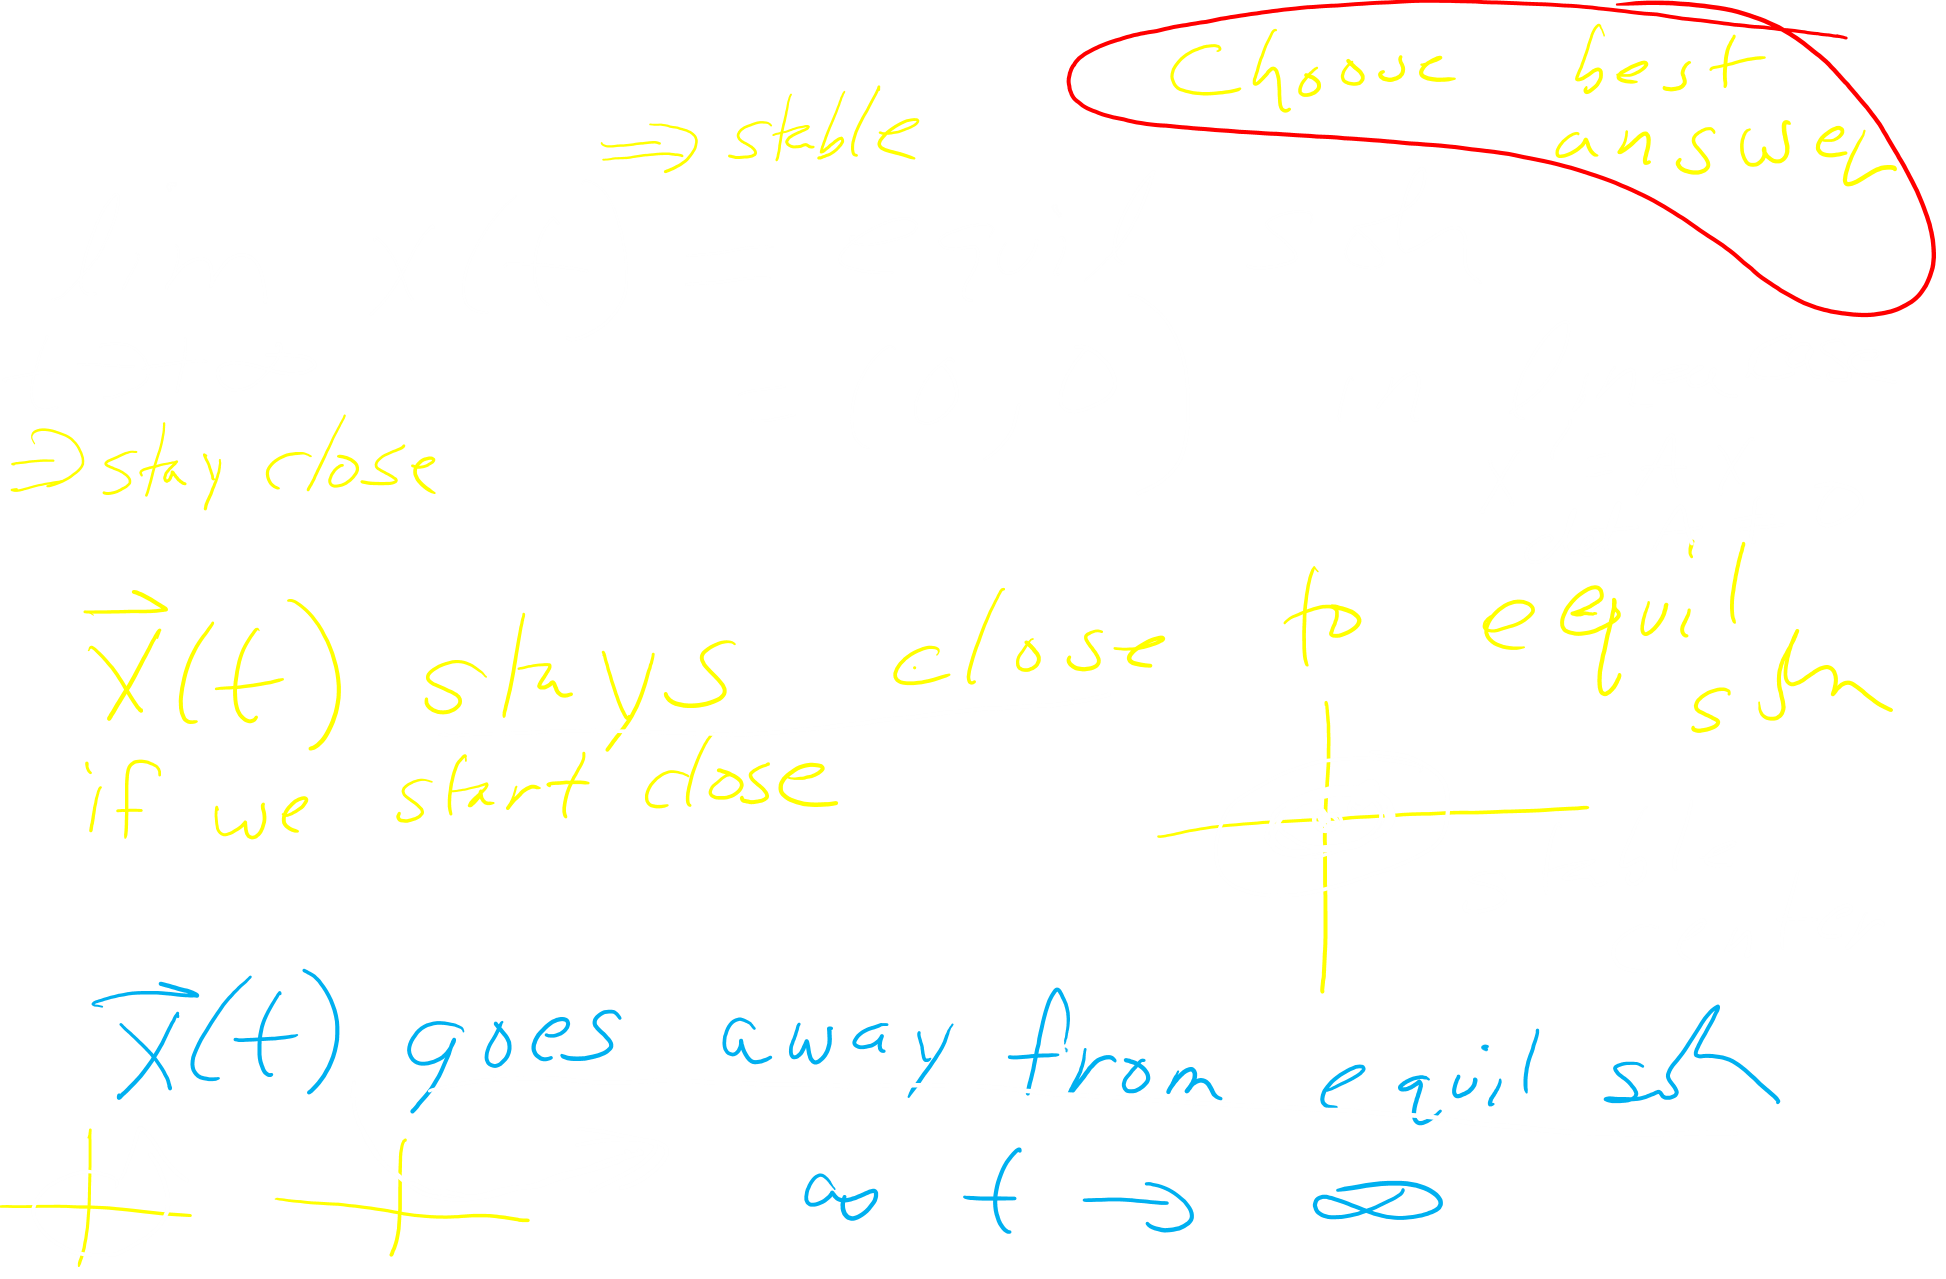 Choose best
⇒ stable answer
⇒ stay close
x⃗(t) stays close to equil
soln
if we start close
x⃗(t) goes away from equil soln
as t → ∞